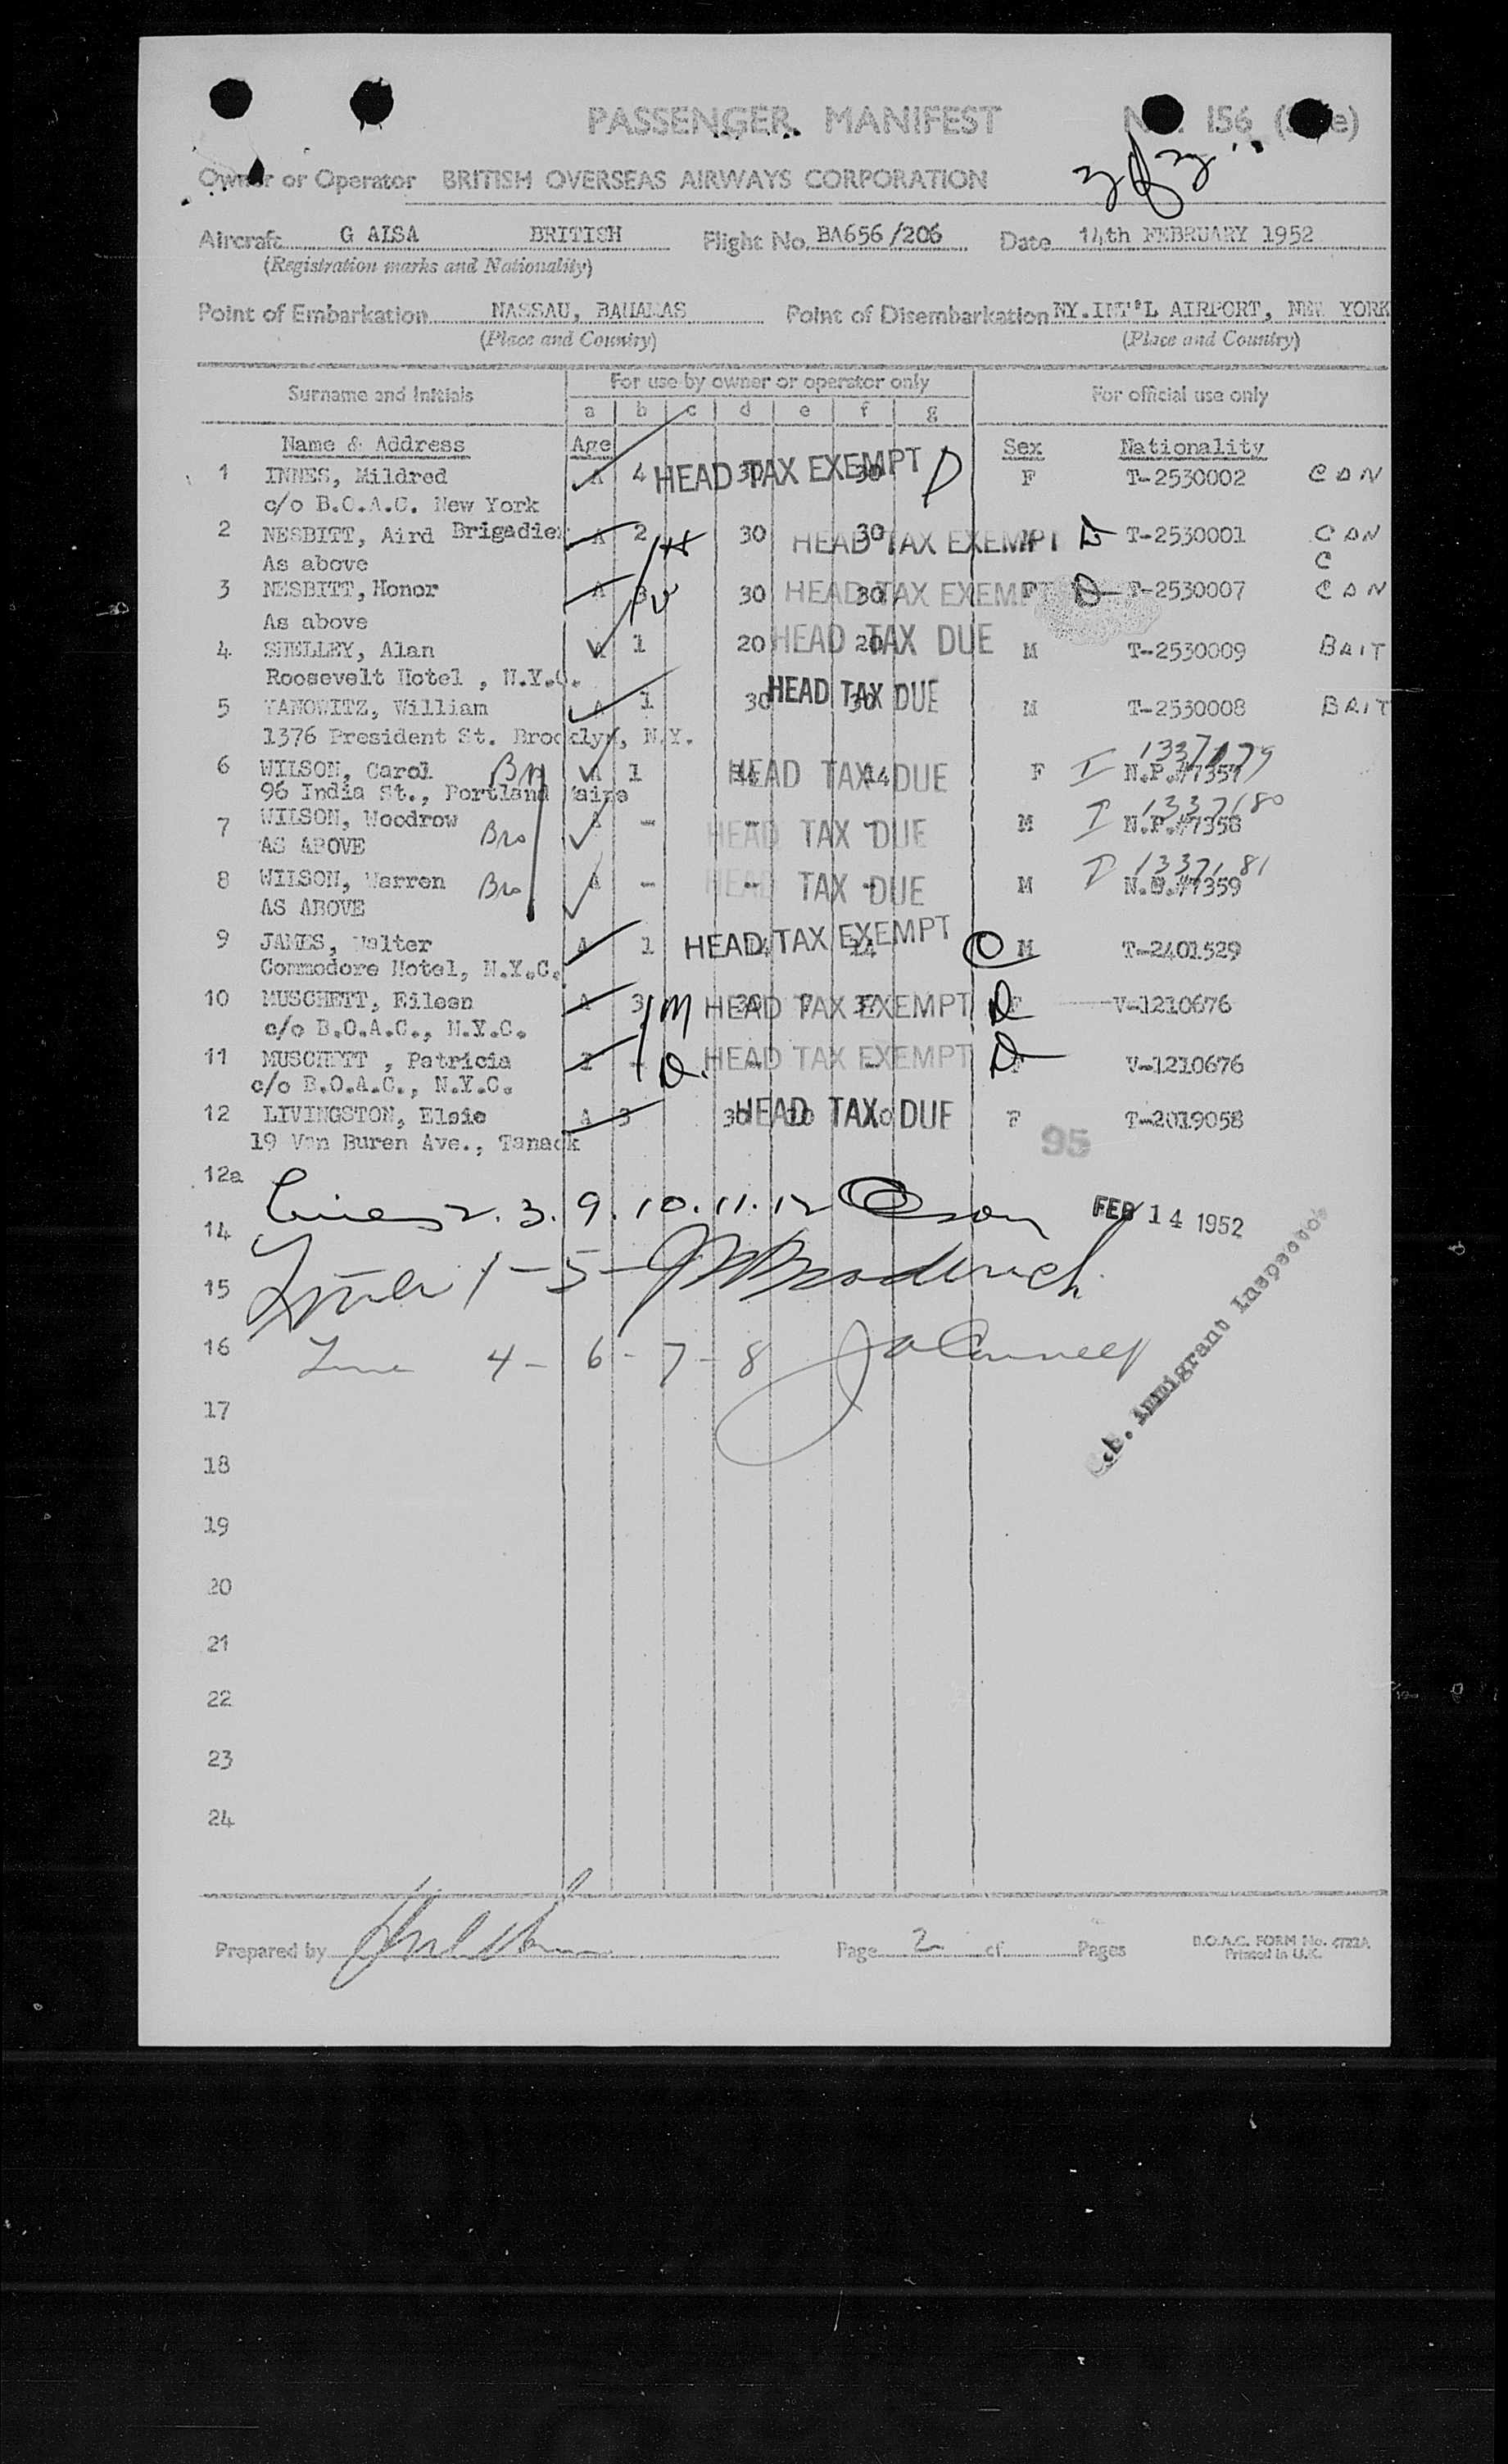 PASSENGER MANIFEST 156
Owner or Operator BRITISH OVERSEAS AIRWAYS CORPORATION
Aircraft G ALSA BRITISH Flight No. BA656/206 Date 14th FEBRUARY 1952
(Registration marks and Nationality)
Point of Embarkation NASSAU, BAHAMAS Point of Disembarkation NY.INT'L AIRPORT, NEW YORK
(Place and Country) (Place and Country)
Surname and Initials For use by owner or operator only For official use only
a b c d e f g
Name & Address Age Sex Nationality
1 INNES, Mildred A 4 30 HEAD TAX EXEMPT 30 D F T-2530002 CAN
c/o B.O.A.C. New York
2 NESBITT, Aird Brigadier A 2 30 30 HEAD TAX EXEMPT D T-2530001 CAN
As above C
3 NESBITT, Honor A 3 30 HEAD TAX EXEMPT 30 F D T-2530007 CAN
As above
4 SHELLEY, Alan A 1 20 HEAD TAX DUE 20 M T-2530009 BRIT
Roosevelt Hotel , N.Y.C.
5 YANOWITZ, William A 1 30 HEAD TAX DUE 30 M T-2530008 BRIT
1376 President St. Brooklyn, N.Y.
6 WILSON, Carol A 1 14 HEAD TAX DUE 14 F N.P.#7357
96 India St., Portland Maine
7 WILSON, Woodrow Bro A - - HEAD TAX DUE - M I 1337180 N.P.#7358
AS ABOVE
8 WILSON, Warren Bro A - - HEAD TAX DUE - M 1337181 #7359
AS ABOVE
9 JAMES, Walter A 1 14 HEAD TAX EXEMPT 14 O M T-2401529
Commodore Hotel, N.Y.C.
10 MUSCHETT, Eileen A 3 M HEAD TAX EXEMPT D F V-1210676
c/o B.O.A.C., N.Y.C.
11 MUSCHETT , Patricia - D. - HEAD TAX EXEMPT - D F V-1210676
c/o B.O.A.C., N.Y.C.
12 LIVINGSTON, Elsie A 3 30 HEAD TAX DUE F T-2019058
19 Van Buren Ave., Tanack 95
12a Lines 2. 3. 9. 10. 11. 12 FEB 14 1952
14
15 1-5- Broderick
16 Line 4 - 6 - 7 - 8
Immigrant Inspector
17
18
19
20
21
22
23
24
Prepared by Page 2 of Pages B.O.A.C. FORM No. 4722A
Printed in U.K.